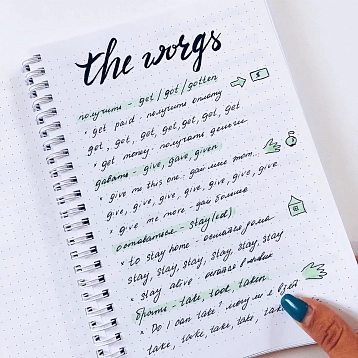 the worgs
получить - get/got/gotten
* get paid - получить оплату
get, got, get, get, get, get, get
* get money - получать деньги
давать - give, gave, given
* give me this one - дай мне этот...
give, give, give, give, give, give, give
* give me more - дай больше
оставаться - stay(ed)
* to stay home - остаться дома
stay, stay, stay, stay, stay, stay
* stay alive - остаться в живых
брать - take, took, taken
* Do I can take? могу ли я взять
take, take, take, take, take, take